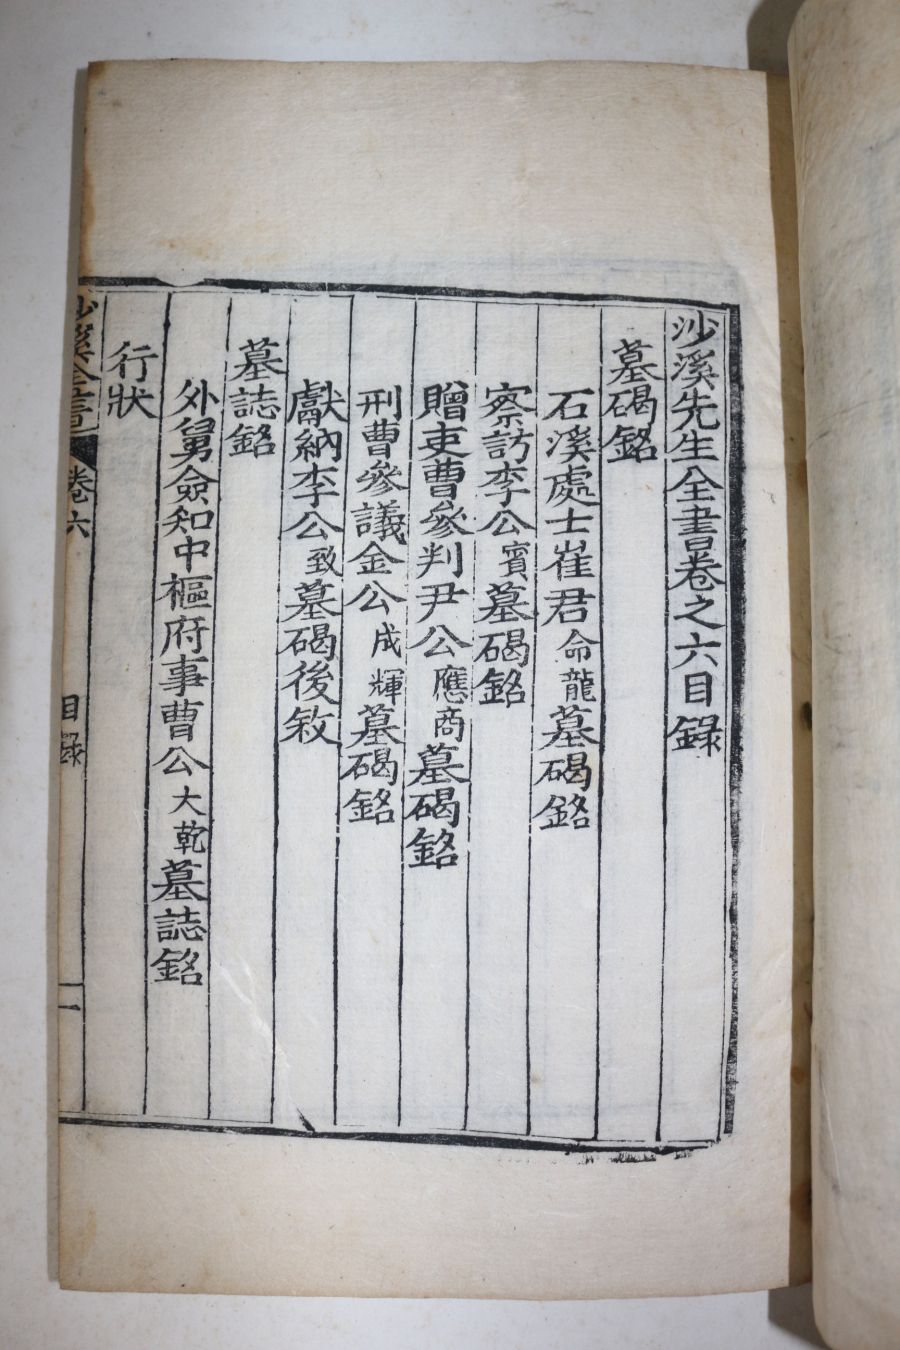 沙溪先生全書卷之六目錄
墓碣銘
石溪處士崔君命龍墓碣銘
察訪李公賓墓碣銘
贈吏曹參判尹公應商墓碣銘
刑曹參議金公成輝墓碣銘
獻納李公致墓碣後敘
墓誌銘
外舅僉知中樞府事曹公大乾墓誌銘
行狀
沙溪全書 卷六 目錄 一